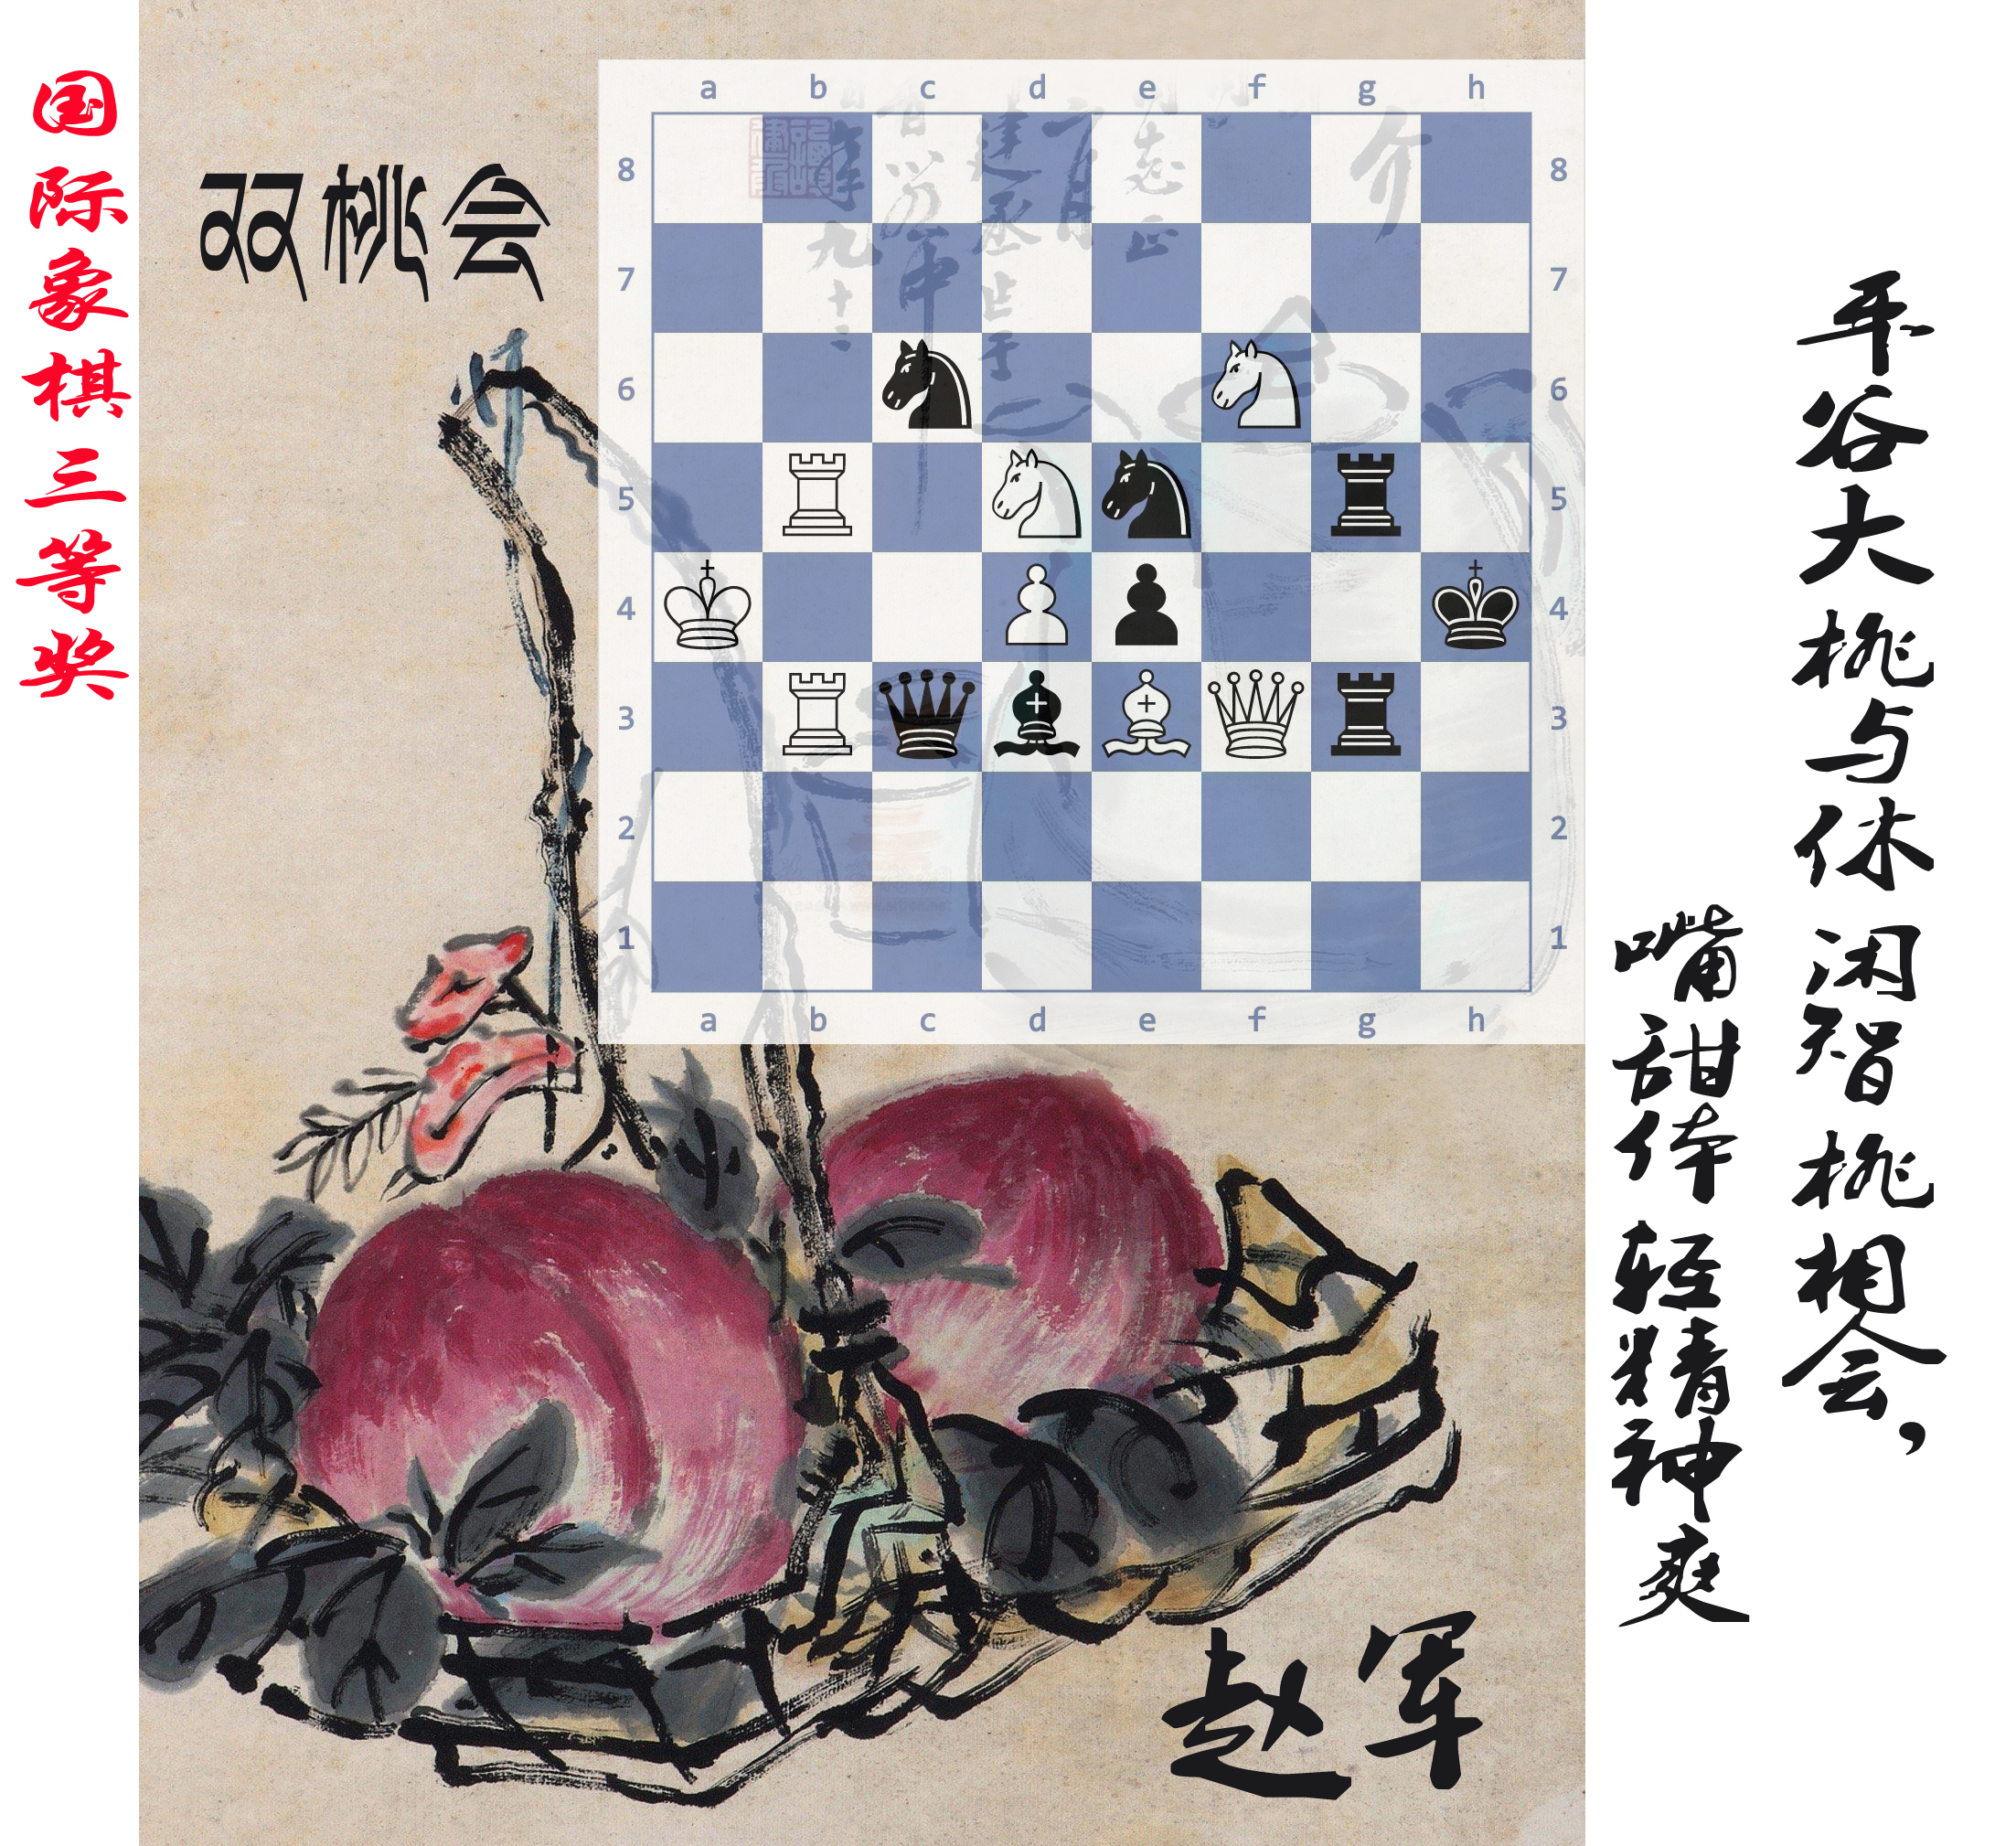 国际象棋三等奖
双桃会
a b c d e f g h
8 8
7 7
6 6
5 5
4 4
3 3
2 2
1 1
a b c d e f g h
平谷大桃与休闲智桃相会,
嘴甜体轻精神爽
赵军